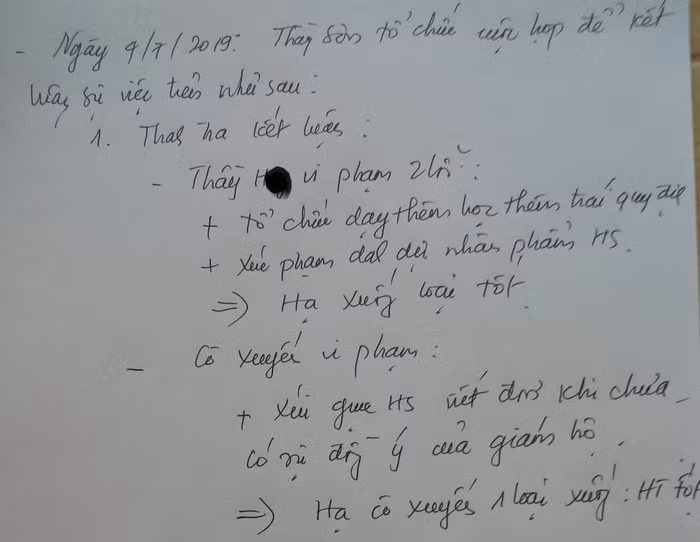 - Ngày 9/7/2019: Thầy Sơn tổ chức cuộc họp để kết
luận sự việc trên như sau:
1. Thanh tra kết luận:
- Thầy H vi phạm 2 lỗi:
+ tổ chức dạy thêm học thêm trái quy định
+ xúc phạm danh dự nhân phẩm HS.
=> Hạ xuống loại tốt.
- Cô Xuyến vi phạm:
+ xúi giục HS viết đơn khi chưa
có sự đồng ý của giám hộ.
=> Hạ cô Xuyến 1 loại xuống: HT tốt